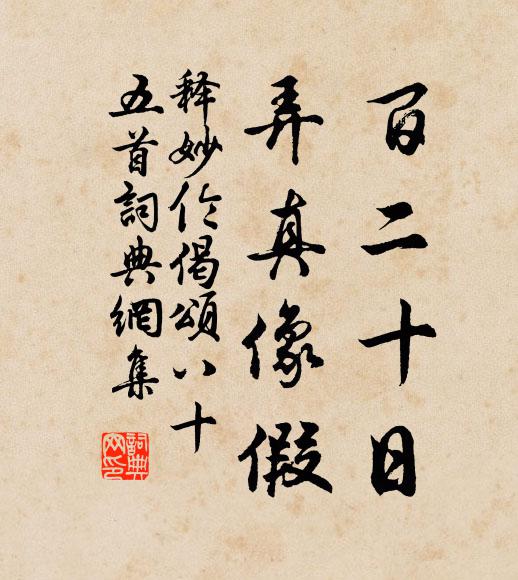 百二十日
弄真像假
释妙伦偈頌八十
五首詞典網集
詞典网印